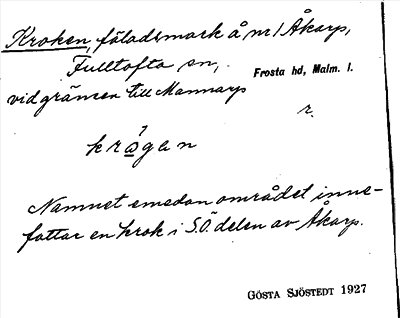 Kroken, fäladsmark å nr 1 Åkarp,
Fulltofta sn,
Frosta hd, Malm. l.
vid gränsen till Mannarp
r.
krogen
Namnet emedan området inne-
fattar en krok i S.Ö. delen av Åkarp.
GÖSTA SJÖSTEDT 1927